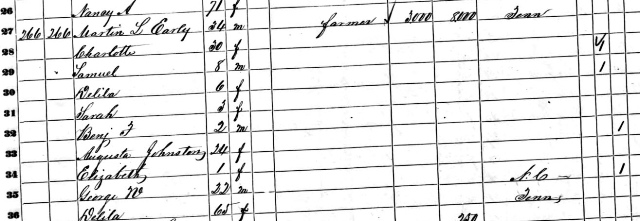 26 Nancy A 71 f
27 266 266 Martin L Early 34 m farmer 3000 8000 Tenn
28 Charlotte 30 f 1/1
29 Samuel 8 m 1
30 Delila 6 f
31 Sarah 3 f
32 Benj F 2 m 1
33 Augusta Johnston 24 f
34 Elizabeth 1 f N.C. 1
35 George W 22 m Tenn
36 Delila 65 f 250